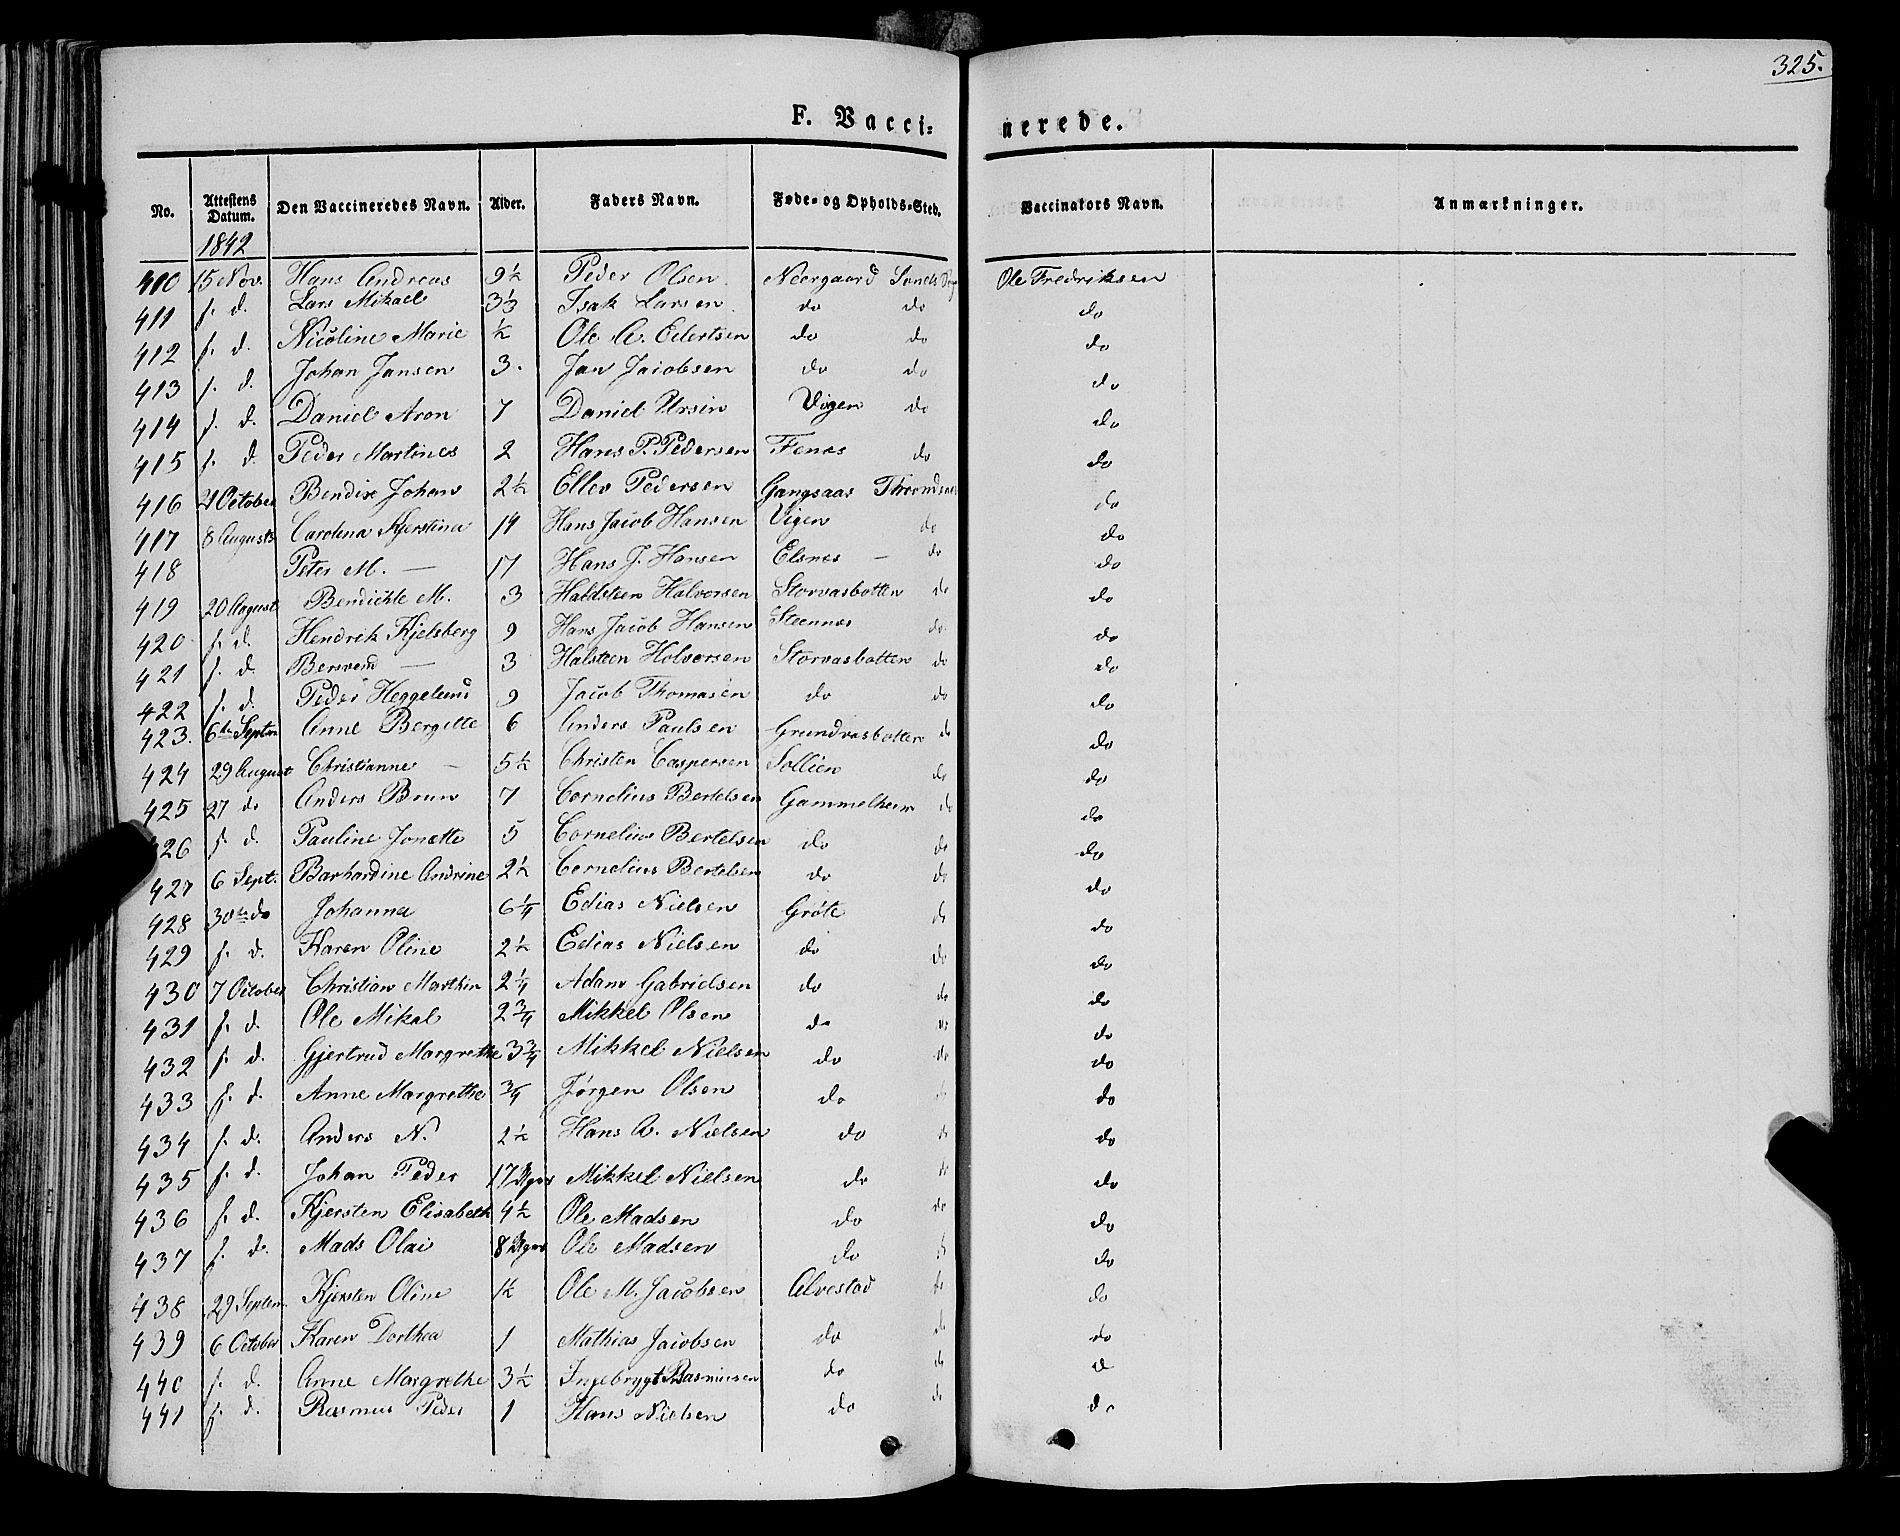 325.
F. Vacci=nerede.
No. Attestens Datum. Den Vaccineredes Navn. Alder. Faders Navn. Føde- og Opholds-Sted. Vaccinators Navn. Anmærkninger.
1842
410 15 Nov. Hans Andreas 9½ Peder Olsen Neergaard Sands Ole Fredriksen
411 f. d. Lars Mikael 3⅓ Isak Larsen do do do
412 f. d. Nicoline Marie ½ Ole A. Edertsen do do do
413 f. d. Johan Jansen 3. Jan Jacobsen do do do
414 f. d. Daniel Aron 7 Daniel Ursin Vigen do do
415 f. d. Peder Martines 2 Hans P. Pedersen Fenes do do
416 21 October Bendix Johan 2½ Ellev Pedersen Gangsaas do
417 8 Augusts Carolena Kjerstina 14 Hans Jacob Hansen Vigen do do
418 Peter M. — 17 Hans J. Hansen Elsnes — do do
419 20 August Bendichte M. 3 Haldsteen Halvorsen Storvasbotten do do
420 f. d. Hendrik Kjelsberg 9 Hans Jacob Hansen Steennes do do
421 f. d. Bersvend — 3 Halsteen Holvorsen Storvasbotten do do
422 f. d. Peder Heggelund 9 Jacob Thomasen do do do
423. 6te Septem Anne Bergitte 6 Anders Paulsen Grundvasbotten do do
424 29 August Christianne — 5½ Christen Caspersen Sollien do do
425 27 do Anders Brun 7 Cornelius Bertelsen Gammelheim do do
426 f. d. Pauline Jonette 5 Cornelius Bertelsen do do do
427 6 Sept. Barhardine Andrine 2½ Cornelius Bertelsen do do do
428 30te do Johanna 6¼ Edias Nielsen Grøte do do
429 f. d. Karen Oline 2½ Edias Nielsen do do do
430 7 October Christian Marthin 2¼ Adam Gabrielsen do do do
431 f. d. Ole Mikal 2¾ Mikkel Olsen do do do
432 f. d. Gjertrud Margrethe 3¾ Mikkel Nielsen do do do
433 f. d. Anne Margrethe ¾ Jørgen Olsen do do do
434 f. d. Anders N. 2½ Hans A. Nielsen do do do
435 f. d. Johan Peder 17 Mikkel Nielsen do do do
436 f. d. Kjersten Elisabeth 4½ Ole Madsen do do do
437 f. d. Mads Olai 8 Ole Madsen do do do
438 29 Septem. Kjersten Oline 1½ Ole M. Jacobsen Alvestad do do
439 6 October Karen Dorthea 1 Mathias Jacobsen do do do
440 f. d. Anne Margrethe 3½ Ingebrygt Rasmusen do do d
441 f. d. Rasmus Peder 1 Hans Nielsen do do do